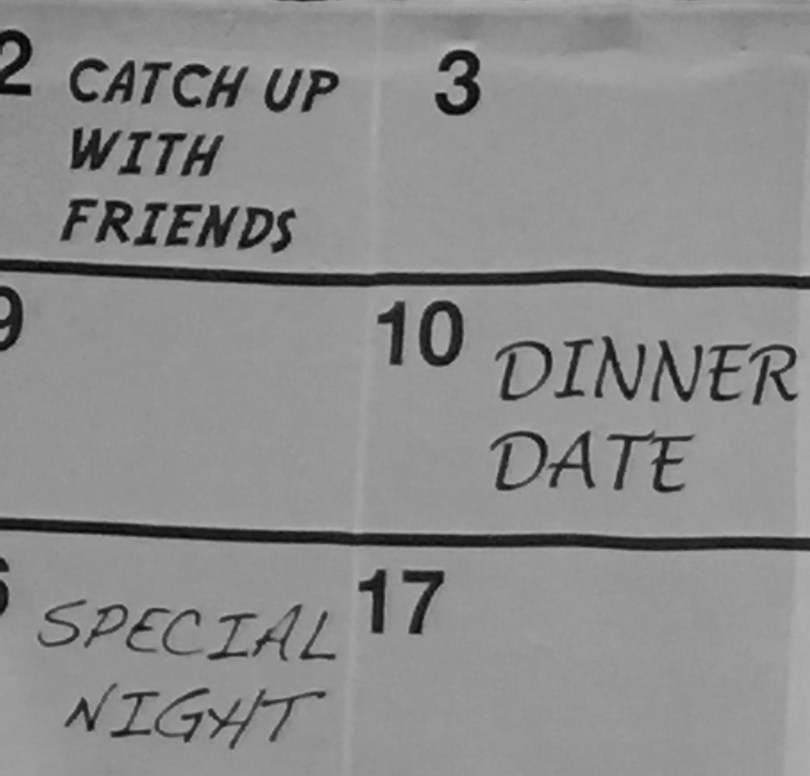 2 CATCH UP 3
WITH
FRIENDS
9 10 DINNER
DATE
6 SPECIAL 17
NIGHT